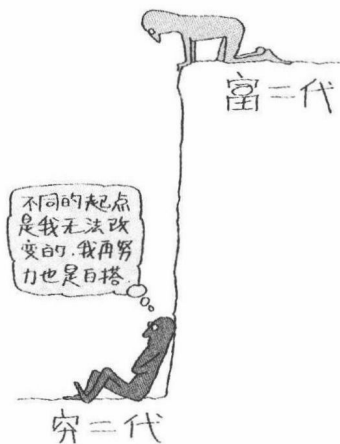 富二代
不同的起点
是我无法改
变的，我再努
力也是白搭
穷二代